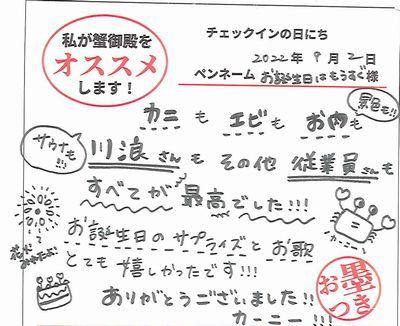 私が蟹御殿を
オススメ
します！
チェックインの日にち
2022年 9月 2日
ペンネーム お誕生日はもうすぐ様
カニも エビも お肉も
景色も!!
サウナも!!!
川浪さんも その他 従業員さんも
すべてが 最高でした!!!
花火みれたよ!
お誕生日のサプライズと お歌
とても 嬉しかったです!!!
カーニー!
ありがとうございました!!
カーニー!!!
お墨つき